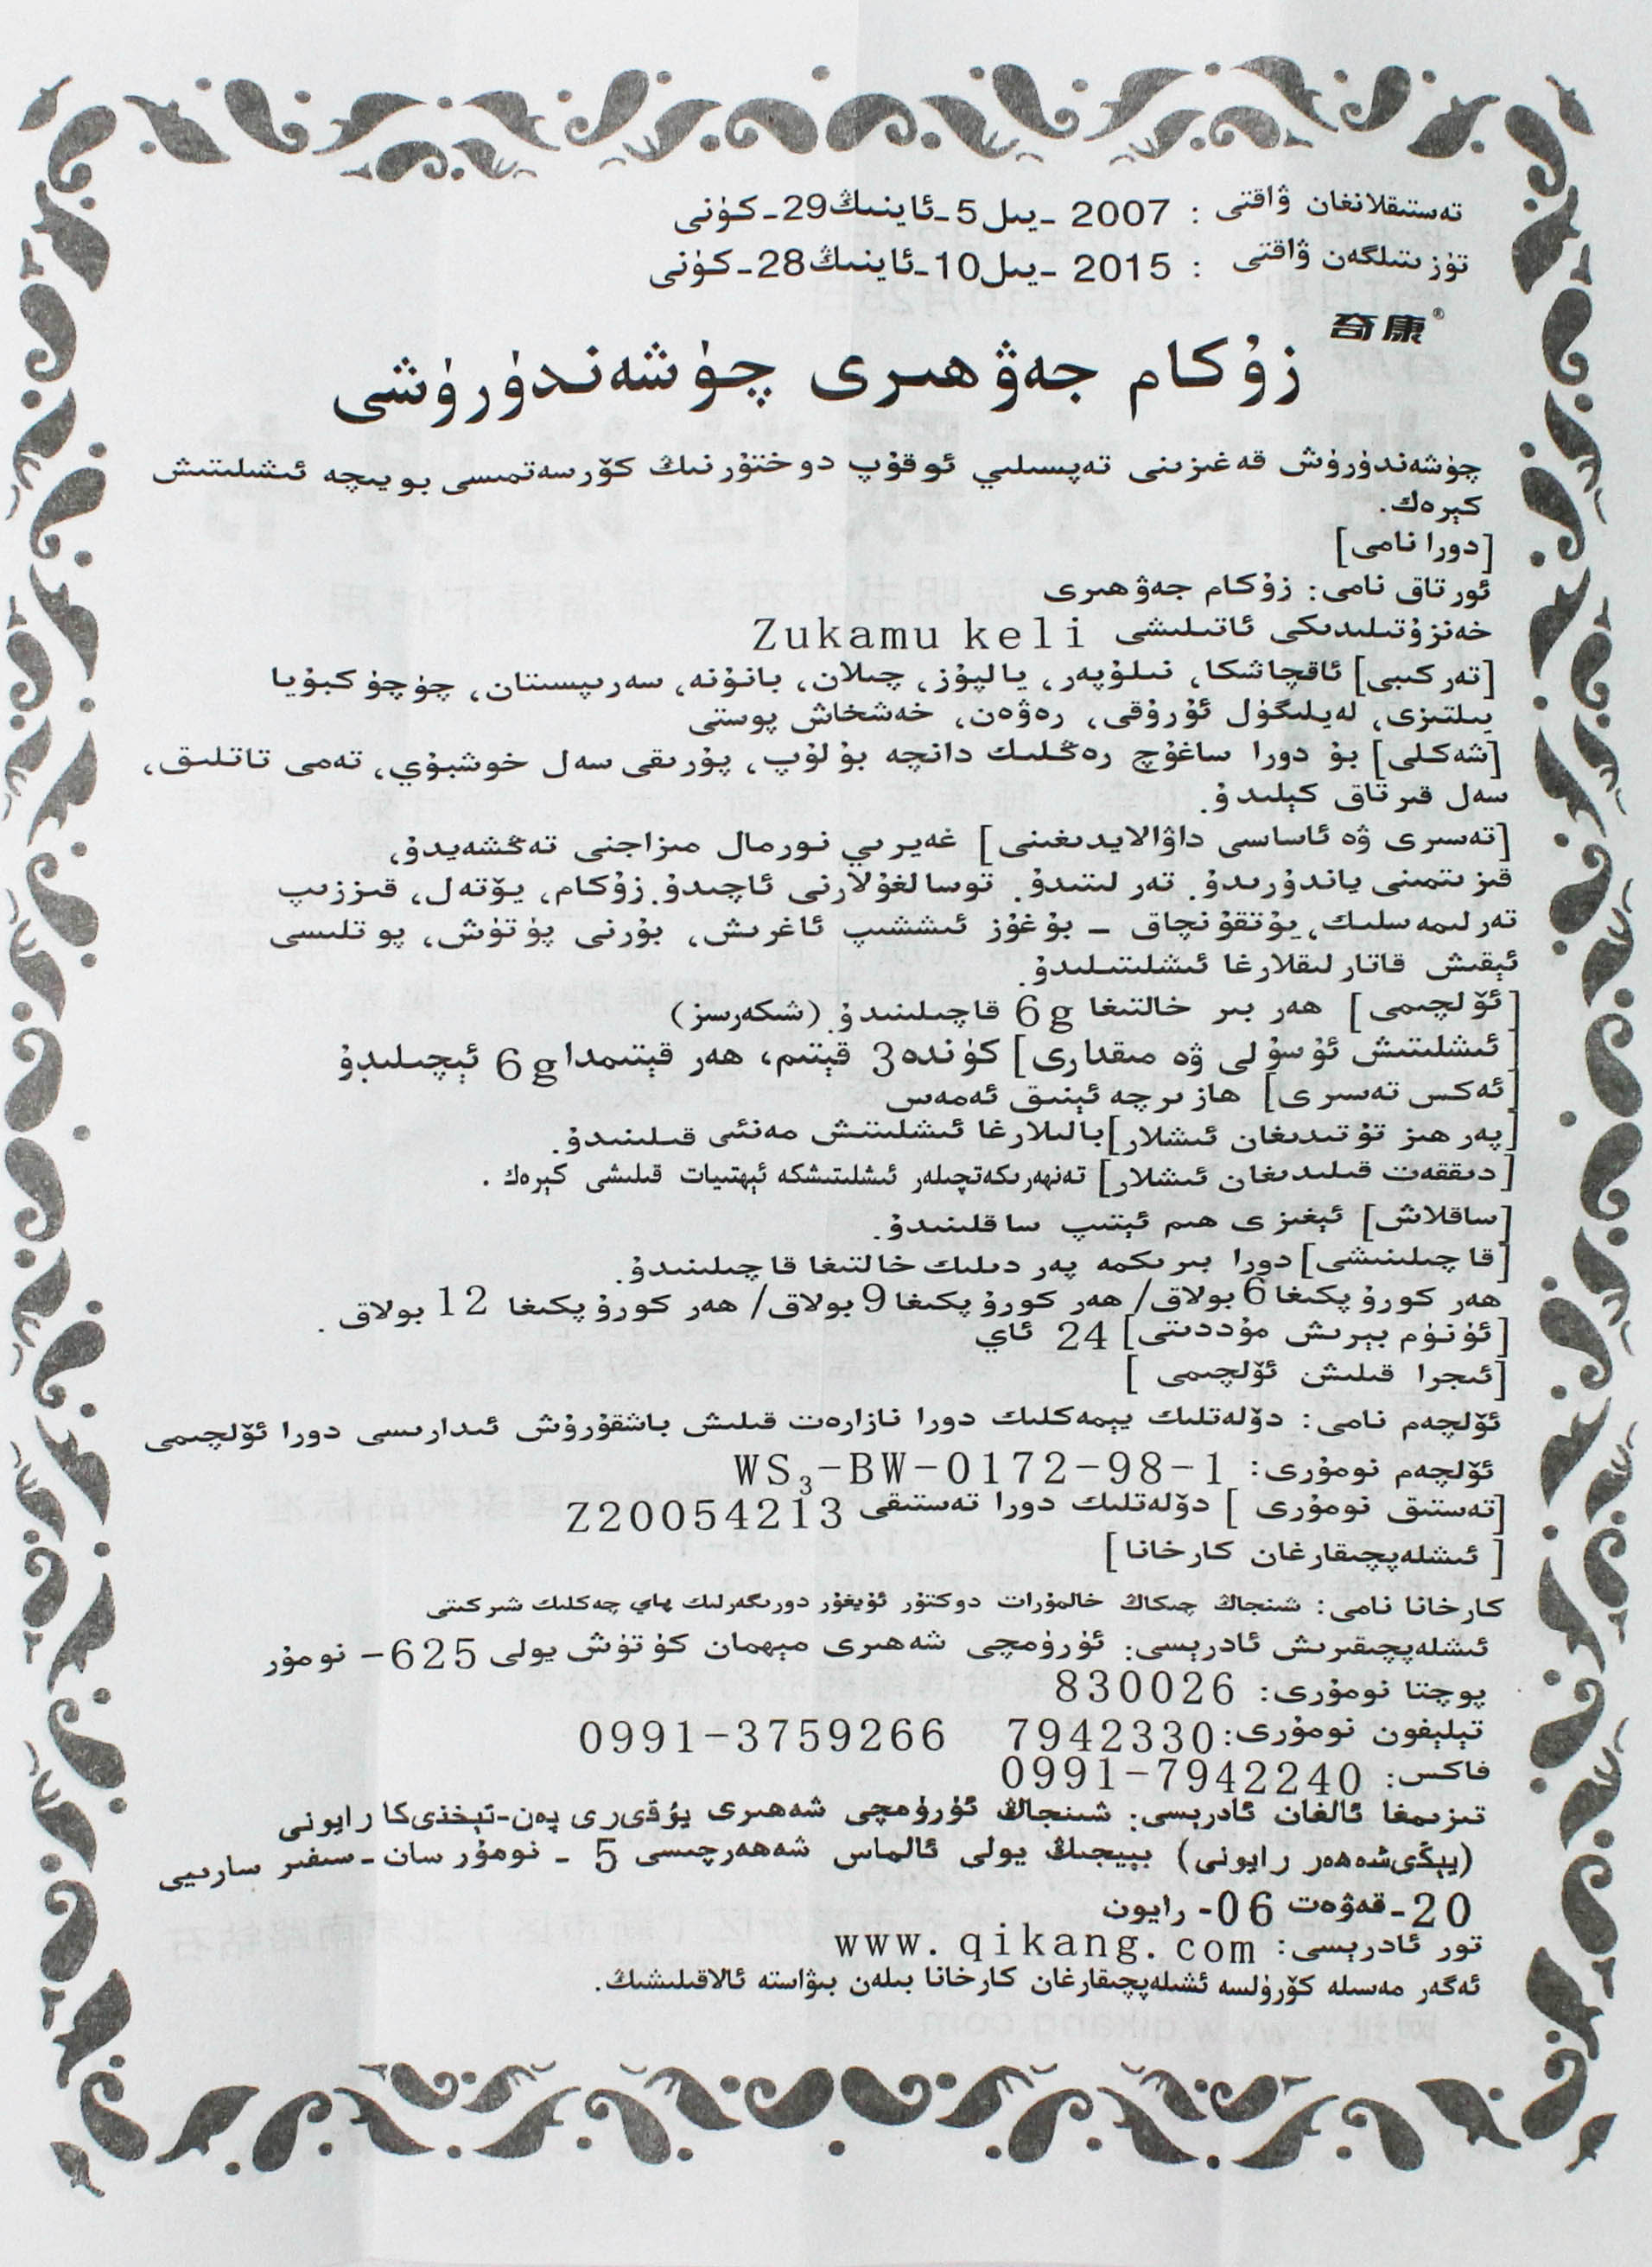 تەستىقلانغان ۋاقتى : 2007 -يىل5-ئاينىڭ29-كۈنى
تۈزىتىلگەن ۋاقتى : 2015 -يىل10-ئاينىڭ28-كۈنى
奇康®
زۇكام جەۋھىرى چۈشەندۈرۈشى
چۈشەندۈرۈش قەغىزىنى تەپسىلىي ئوقۇپ دوختۇرنىڭ كۆرسەتمىسى بويىچە ئىشلىتىش
كېرەك.
[دورا نامى]
ئورتاق نامى: زۇكام جەۋھىرى
خەنزۇتىلىدىكى ئاتىلىشى Zukamu keli
[تەركىبى] ئاقچاشكا، نىلۇپەر، يالپۇز، چىلان، بانۇنە، سەرىپىستان، چۈچۈكبۇيا
يىلتىزى، لەيلىگۈل ئۇرۇقى، رەۋەن، خەشخاش پوستى
[شەكلى] بۇ دورا ساغۇچ رەڭلىك دانچە بۇلۇپ، پۇرىقى سەل خوشبۇي، تەمى تاتلىق،
سەل قىرتاق كېلىدۇ.
[تەسىرى ۋە ئاساسى داۋالايدىغىنى] غەيرىي نورمال مىزاجنى تەڭشەيدۇ،
قىزىتمىنى ياندۇرىدۇ. تەرلىتىدۇ. توسالغۇلارنى ئاچىدۇ.زۇكام، يۆتەل، قىززىپ
تەرلىمەسلىك، يۇتقۇنچاق – بۇغۇز ئىششىپ ئاغرىش، بۇرنى پۈتۈش، پوتلىسى
ئېقىش قاتارلىقلارغا ئىشلىتىلىدۇ.
[ئۆلچىمى] ھەر بىر خالتىغا 6g قاچىلىنىدۇ.(شىكەرسىز)
[ئىشلىتىش ئۇسۇلى ۋە مىقدارى] كۈندە3 قېتىم، ھەر قېتىمدا6g ئېچىلىدۇ
[ئەكس تەسىرى] ھازىرچە ئېنىق ئەمەس
[پەرھىز تۇتىدىغان ئىشلار]بالىلارغا ئىشلىتىش مەنئى قىلىنىدۇ.
[دىققەت قىلىدىغان ئىشلار] تەنھەرىكەتچىلەر ئىشلىتىشكە ئېھتىيات قىلىشى كېرەك .
[ساقلاش] ئېغىزى ھىم ئېتىپ ساقلىنىدۇ.
[قاچىلىنىشى]دورا بىرىكمە پەردىلىك خالتىغا قاچىلىنىدۇ.
ھەر كورۇپكىغا6بولاق/ ھەر كورۇپكىغا9بولاق/ ھەر كورۇپكىغا 12بولاق .
[ئۈنۈم بېرىش مۇددىتى] 24 ئاي
[ئىجرا قىلىش ئۆلچىمى ]
ئۆلچەم نامى: دۆلەتلىك يېمەكلىك دورا نازارەت قىلىش باشقۇرۇش ئىدارىسى دورا ئۆلچىمى
ئۆلچەم نومۇرى: WS₃-BW-0172-98-1
[تەستىق نومۇرى ] دۆلەتلىك دورا تەستىقى Z20054213
[ ئىشلەپچىقارغان كارخانا ]
كارخانا نامى: شىنجاڭ چىكاڭ خالمۇرات دوكتۇر ئۇيغۇر دورىگەرلىك پاي چەكلىك شىركىتى
ئىشلەپچىقىرىش ئادرېسى: ئۈرۈمچى شەھىرى مېھمان كۈتۈش يولى 625- نومۇر
پوچتا نومۇرى: 830026
تېلېفون نومۇرى: 7942330 0991-3759266
فاكس: 0991-7942240
تىزىمغا ئالغان ئادرېسى: شىنجاڭ ئۈرۈمچى شەھىرى يۇقىرى پەن-تېخنىكا رايونى
(يېڭىشەھەر رايونى) بېيجىڭ يولى ئالماس شەھەرچىسى 5 - نومۇر سان-سىفىر سارىيى
20-قەۋەت 06- رايون
تور ئادرېسى: www.qikang.com
ئەگەر مەسىلە كۆرۈلسە ئىشلەپچىقارغان كارخانا بىلەن بىۋاستە ئالاقىلىشىڭ.